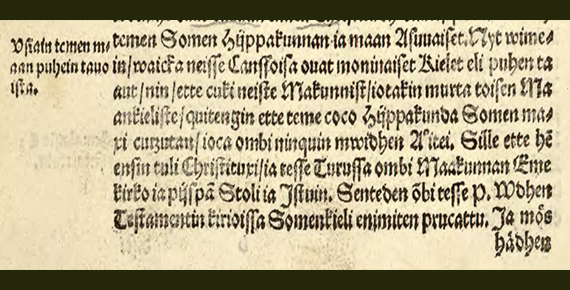 Vseain temen m⸗
aan puhein tauo
ista.
temen Somen Hijppakunnan ia maan Asuuaiset. Nyt wime⸗
in/waicka neisse Canssoisa ouat moninaiset Kielet eli puhen ta
aut/nin/ette cuki neiste Makunnist/iotakin murta toisen Ma
ankieliste/quitengin ette teme coco Hijppakunda Somen ma⸗
xi cutzutan/ioca ombi ninquin mwidhen Aͤitei. Sille ette hē
ensin tuli Christituxi/ia tesse Turussa ombi Maakunnan Eme
kirko ia pijspā Stoli ia Istuin. Senteden ōbi tesse p. Wdhen
Testamentin kirioissa Somenkieli enimiten prucattu. Ja mös
hädhen